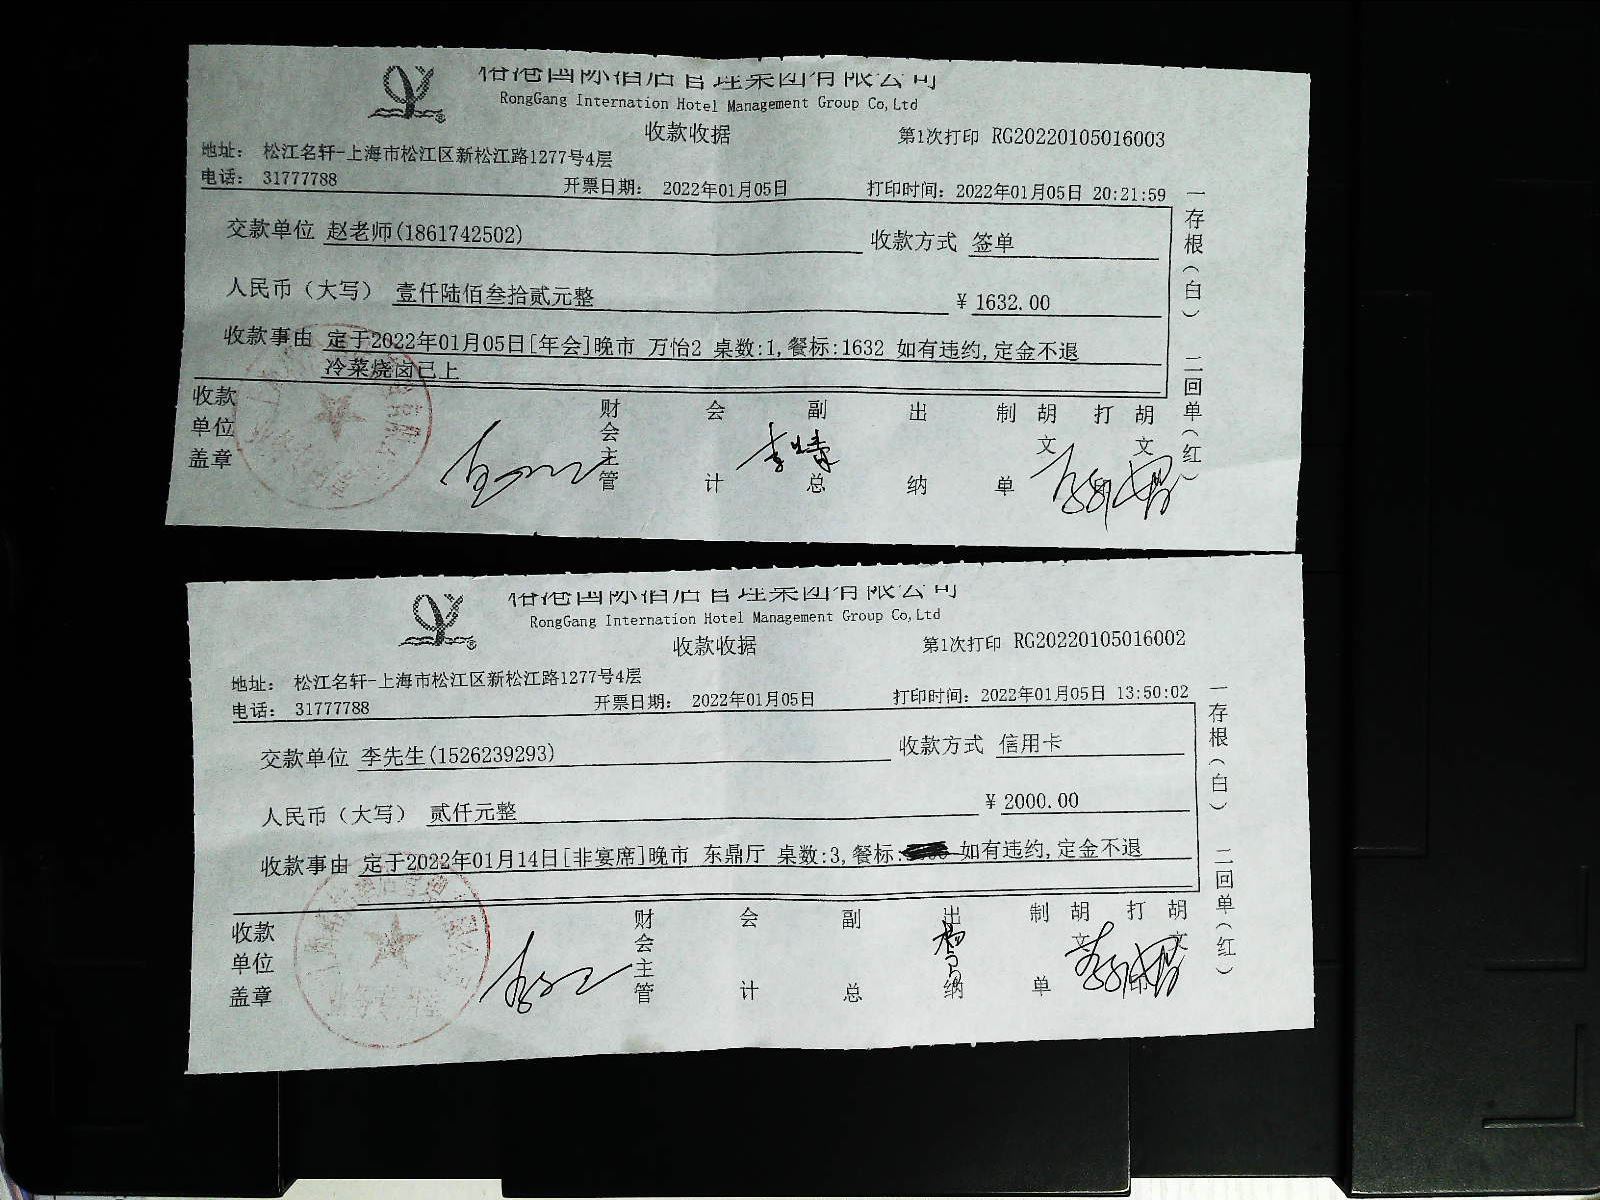 国际酒店管理集团有限公司
RongGang Internation Hotel Management Group Co,Ltd
收款收据
第1次打印 RG20220105016003
地址： 松江名轩-上海市松江区新松江路1277号4层
电话： 31777788 开票日期： 2022年01月05日 打印时间：2022年01月05日 20:21:59
交款单位 赵老师(1861742502) 收款方式 签单
人民币（大写） 壹仟陆佰叁拾贰元整 ¥ 1632.00
收款事由 定于2022年01月05日[年会]晚市 万怡2 桌数:1,餐标:1632 如有违约,定金不退
冷菜烧卤已上
一存根（白） 二回单（红）
收款单位盖章
财会主管 会计 副总 出纳 制单 胡文 打 胡文
国际酒店管理集团有限公司
RongGang Internation Hotel Management Group Co,Ltd
收款收据
第1次打印 RG20220105016002
地址： 松江名轩-上海市松江区新松江路1277号4层
电话： 31777788 开票日期： 2022年01月05日 打印时间：2022年01月05日 13:50:02
交款单位 李先生(1526239293) 收款方式 信用卡
人民币（大写） 贰仟元整 ¥ 2000.00
收款事由 定于2022年01月14日[非宴席]晚市 东鼎厅 桌数:3,餐标: 如有违约,定金不退
一存根（白） 二回单（红）
收款单位盖章
财会主管 会计 副总 出纳 制单 胡文 打 胡文